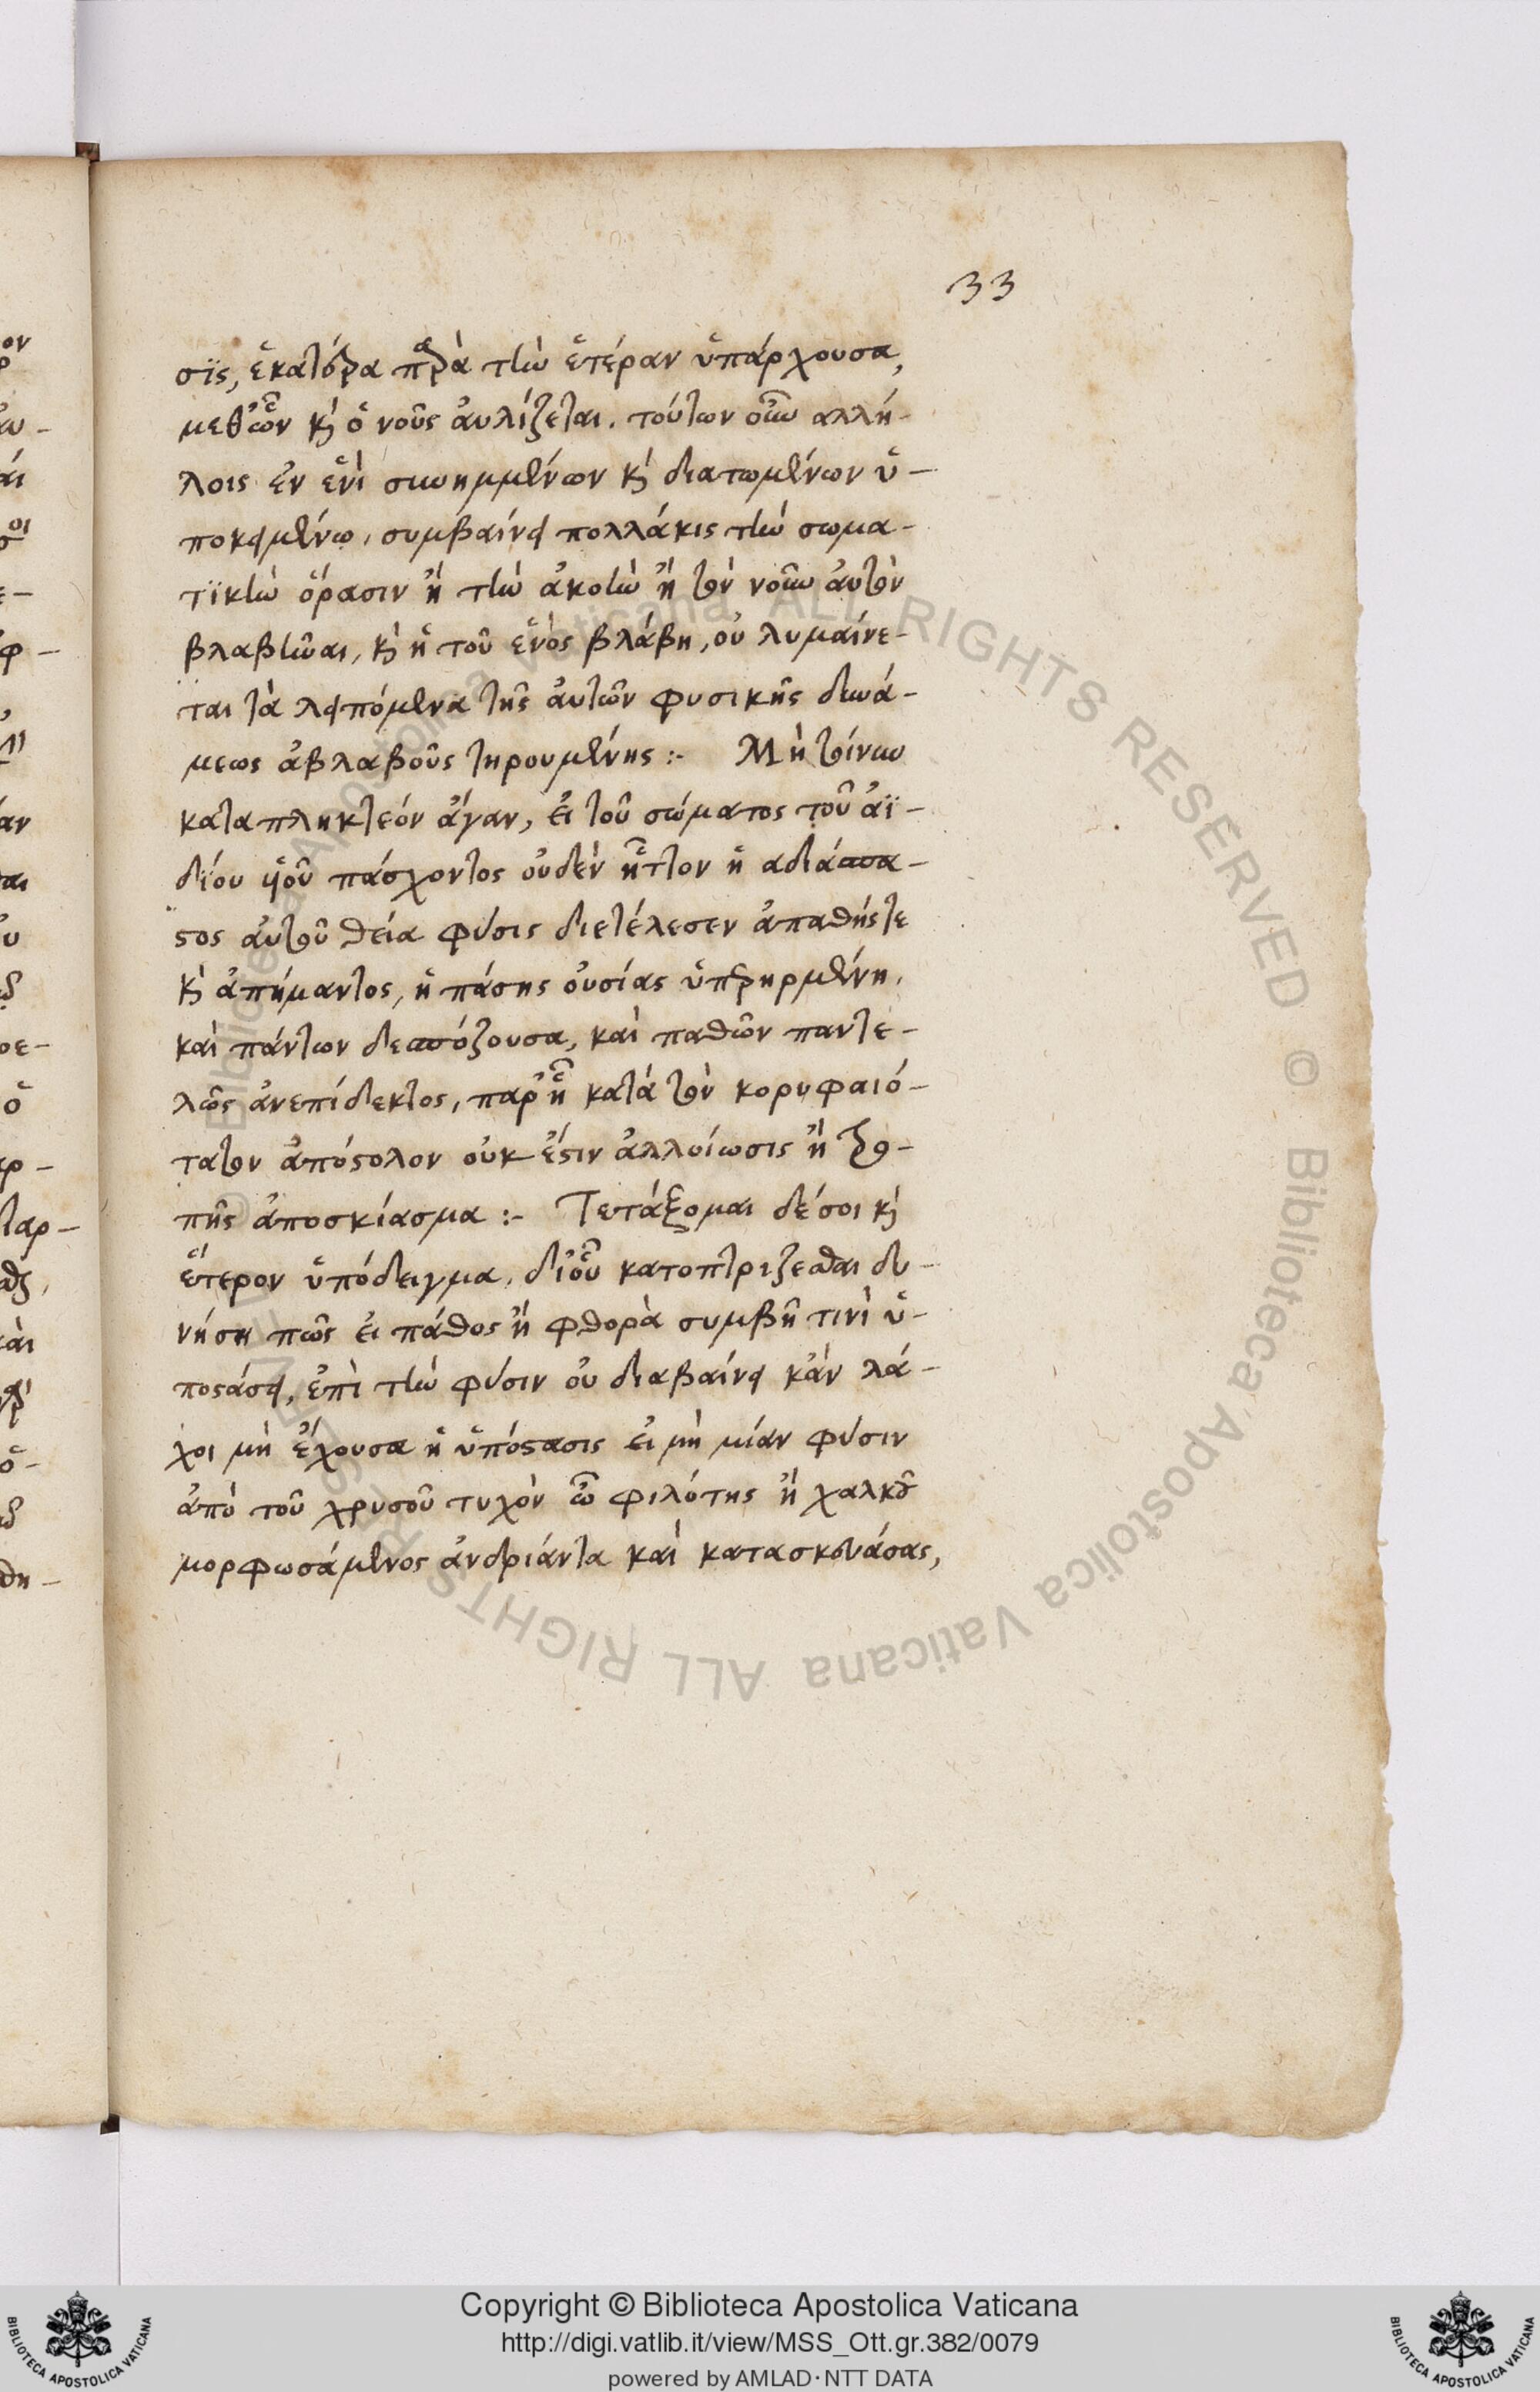 33
σϊς, ἑκατέρα παρὰ τὴν ἑτέραν ὑπάρχουσα,
μεθ᾽ ὧν κὶ ὁ νοῦς ἀυλίζεται. τούτων οὖν αλλή-
λοις ἐν ἑνὶ συνημμένων κὶ διατωμένων ὑ-
ποκειμένω, συμβαίνει πολλάκις τὴν σωμα-
τϊκὴν ὅρασιν ἢ τὴν ἀκοὴν ἢ τὸν νοῦν ἀυτὸν
βλαβῆναι, κὶ ἡ τοῦ ἑνὸς βλάβη, οὐ λυμαίνε-
ται τὰ λειπόμενα τῆς ἀυτῶν φυσικῆς δυνά-
μεως ἀβλαβοῦς τηρουμένης :- Μὴ τοίνυν
καταπληκτεόν ἄγαν, ἐι τοῦ σώματος τοῦ ἀϊ-
δΐου υἱοῦ πάσχοντος οὐδὲν ἧττον ἡ αδιάσπα-
στος ἀυτοῦ θεία φύσις διετέλεσεν ἀπαθήςτε
κὶ ἀπήμαντος, ἡ πάσης οὐσίας ὑπερηρμένη,
καὶ πάντων δεσπόζουσα, καὶ παθῶν παντε-
λῶς ἀνεπίδεκτος, παρ᾽ ἧ κατὰ τὸν κορυφαιό-
τατον ἀπόστολον οὐκ ἔστιν ἀλλοίωσις ἢ τρο-
πῆς ἀποσκίασμα :- Τετάξομαι δέσοι κὶ
ἕτερον ὑπόδειγμα, δι᾽ οὗ κατοπτριζεσθαι δυ-
νήση πῶς ἐι πάθος ἢ φθορὰ συμβῆ τινὶ ὑ-
ποστάσει, ἐπὶ τὴν φύσιν οὐ διαβαίνει κἂν λά-
χοι μὴ ἔχουσα ἡ ὑπόστασις ἐι μὴ μίαν φύσιν
ἀπὸ τοῦ χρυσοῦ τυχὸν ὦ φιλότης ἢ χαλκοῦ
μορφωσάμενος ἀνδριάντα καὶ κατασκευάσας,
Copyright © Biblioteca Apostolica Vaticana
http://digi.vatlib.it/view/MSS_Ott.gr.382/0079
powered by AMLAD·NTT DATA